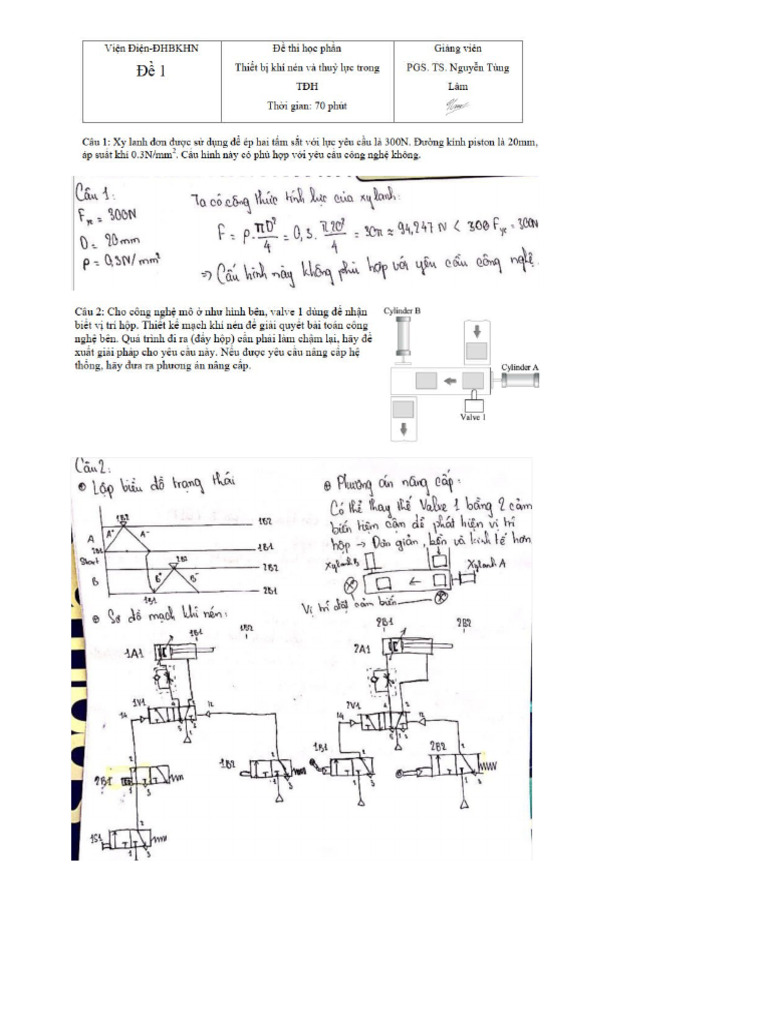 Viện Điện-ĐHBKHN
Đề 1
Đề thi học phần
Thiết bị khí nén và thuỷ lực trong
TĐH
Thời gian: 70 phút
Giảng viên
PGS. TS. Nguyễn Tùng
Lâm
Câu 1: Xy lanh đơn được sử dụng để ép hai tấm sắt với lực yêu cầu là 300N. Đường kính piston là 20mm,
áp suất khí 0.3N/mm². Cấu hình này có phù hợp với yêu cầu công nghệ không.
Câu 1:
F yc = 300N
D = 20mm
P = 0,3N/mm²
Ta có công thức tính lực của xylanh:
F = P. πD²/4 = 0,3. π20²/4 = 30π ≈ 94,247 N < 300 Fyc = 300N
⇒ Cấu hình này không phù hợp với yêu cầu công nghệ.
Câu 2: Cho công nghệ mô ở như hình bên, valve 1 dùng để nhận
biết vị trí hộp. Thiết kế mạch khí nén để giải quyết bài toán công
nghệ bên. Quá trình đi ra (đẩy hộp) cần phải làm chậm lại, hãy đề
xuất giải pháp cho yêu cầu này. Nếu được yêu cầu nâng cấp hệ
thống, hãy đưa ra phương án nâng cấp.
Cylinder B
Cylinder A
Valve 1
Câu 2:
Lập biểu đồ trạng thái
1B2
1B2
A
A+
A-
2B1
1B1
Start
2B2
2B2
B
B+
B-
1B1
2B1
Phương án nâng cấp:
Có thể thay thế Valve 1 bằng 2 cảm
biến tiệm cận để phát hiện vị trí
hộp → Đơn giản, bền và kinh tế hơn
Xylanh B
Xylanh A
Vị trí đặt cảm biến
Sơ đồ mạch khí nén:
1B1
1B2
1A1
1V1
14
12
4
2
5
3
1
2B1
2
1
3
1B2
2
1
3
1S1
2
1
3
2B1
2B2
2A1
2V1
14
12
4
2
5
3
1
1B1
2
1
3
2B2
2
1
3